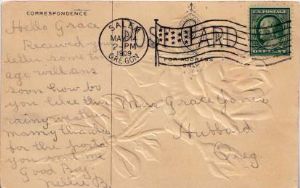 CORRESPONDENCE
Hello Grace
Received your
letter some time
ago will ans
soon how do
you like this
rainy weather
many thanks
for the
you sent me
Good Bye
Nellie B.
SALEM
MAY
2-PM
1909
OREGON
CARD
Miss Grace Jones
Hubbard
Oreg.